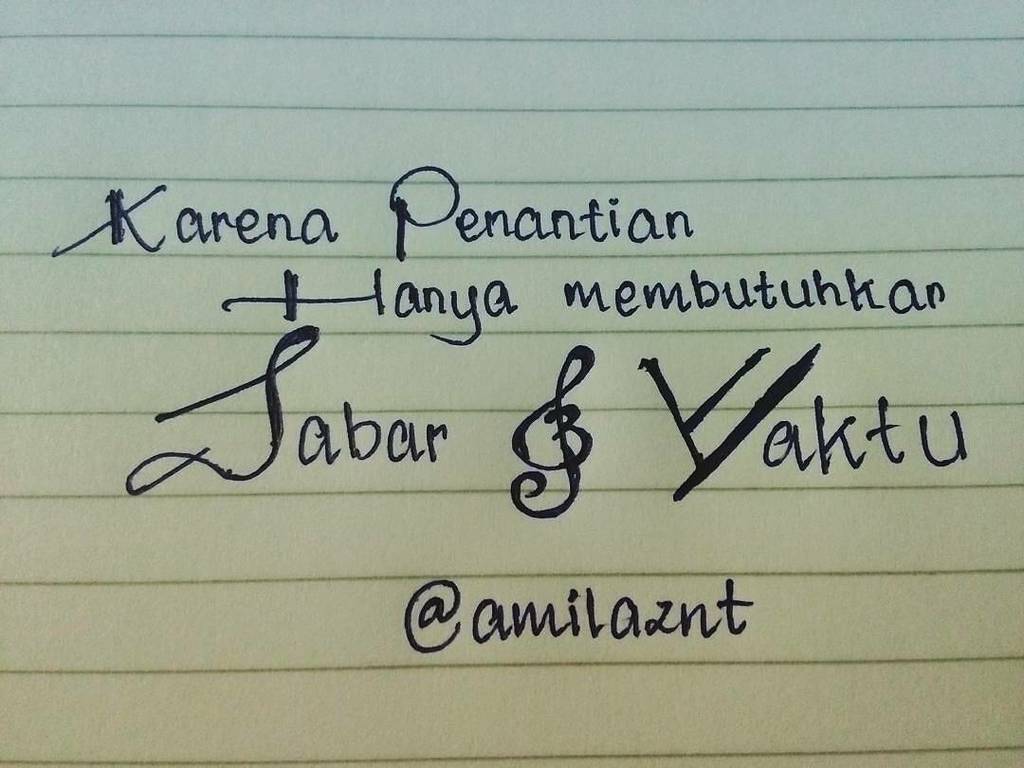 Karena Penantian
Hanya membutuhkan
Sabar & Waktu
@amilaznt